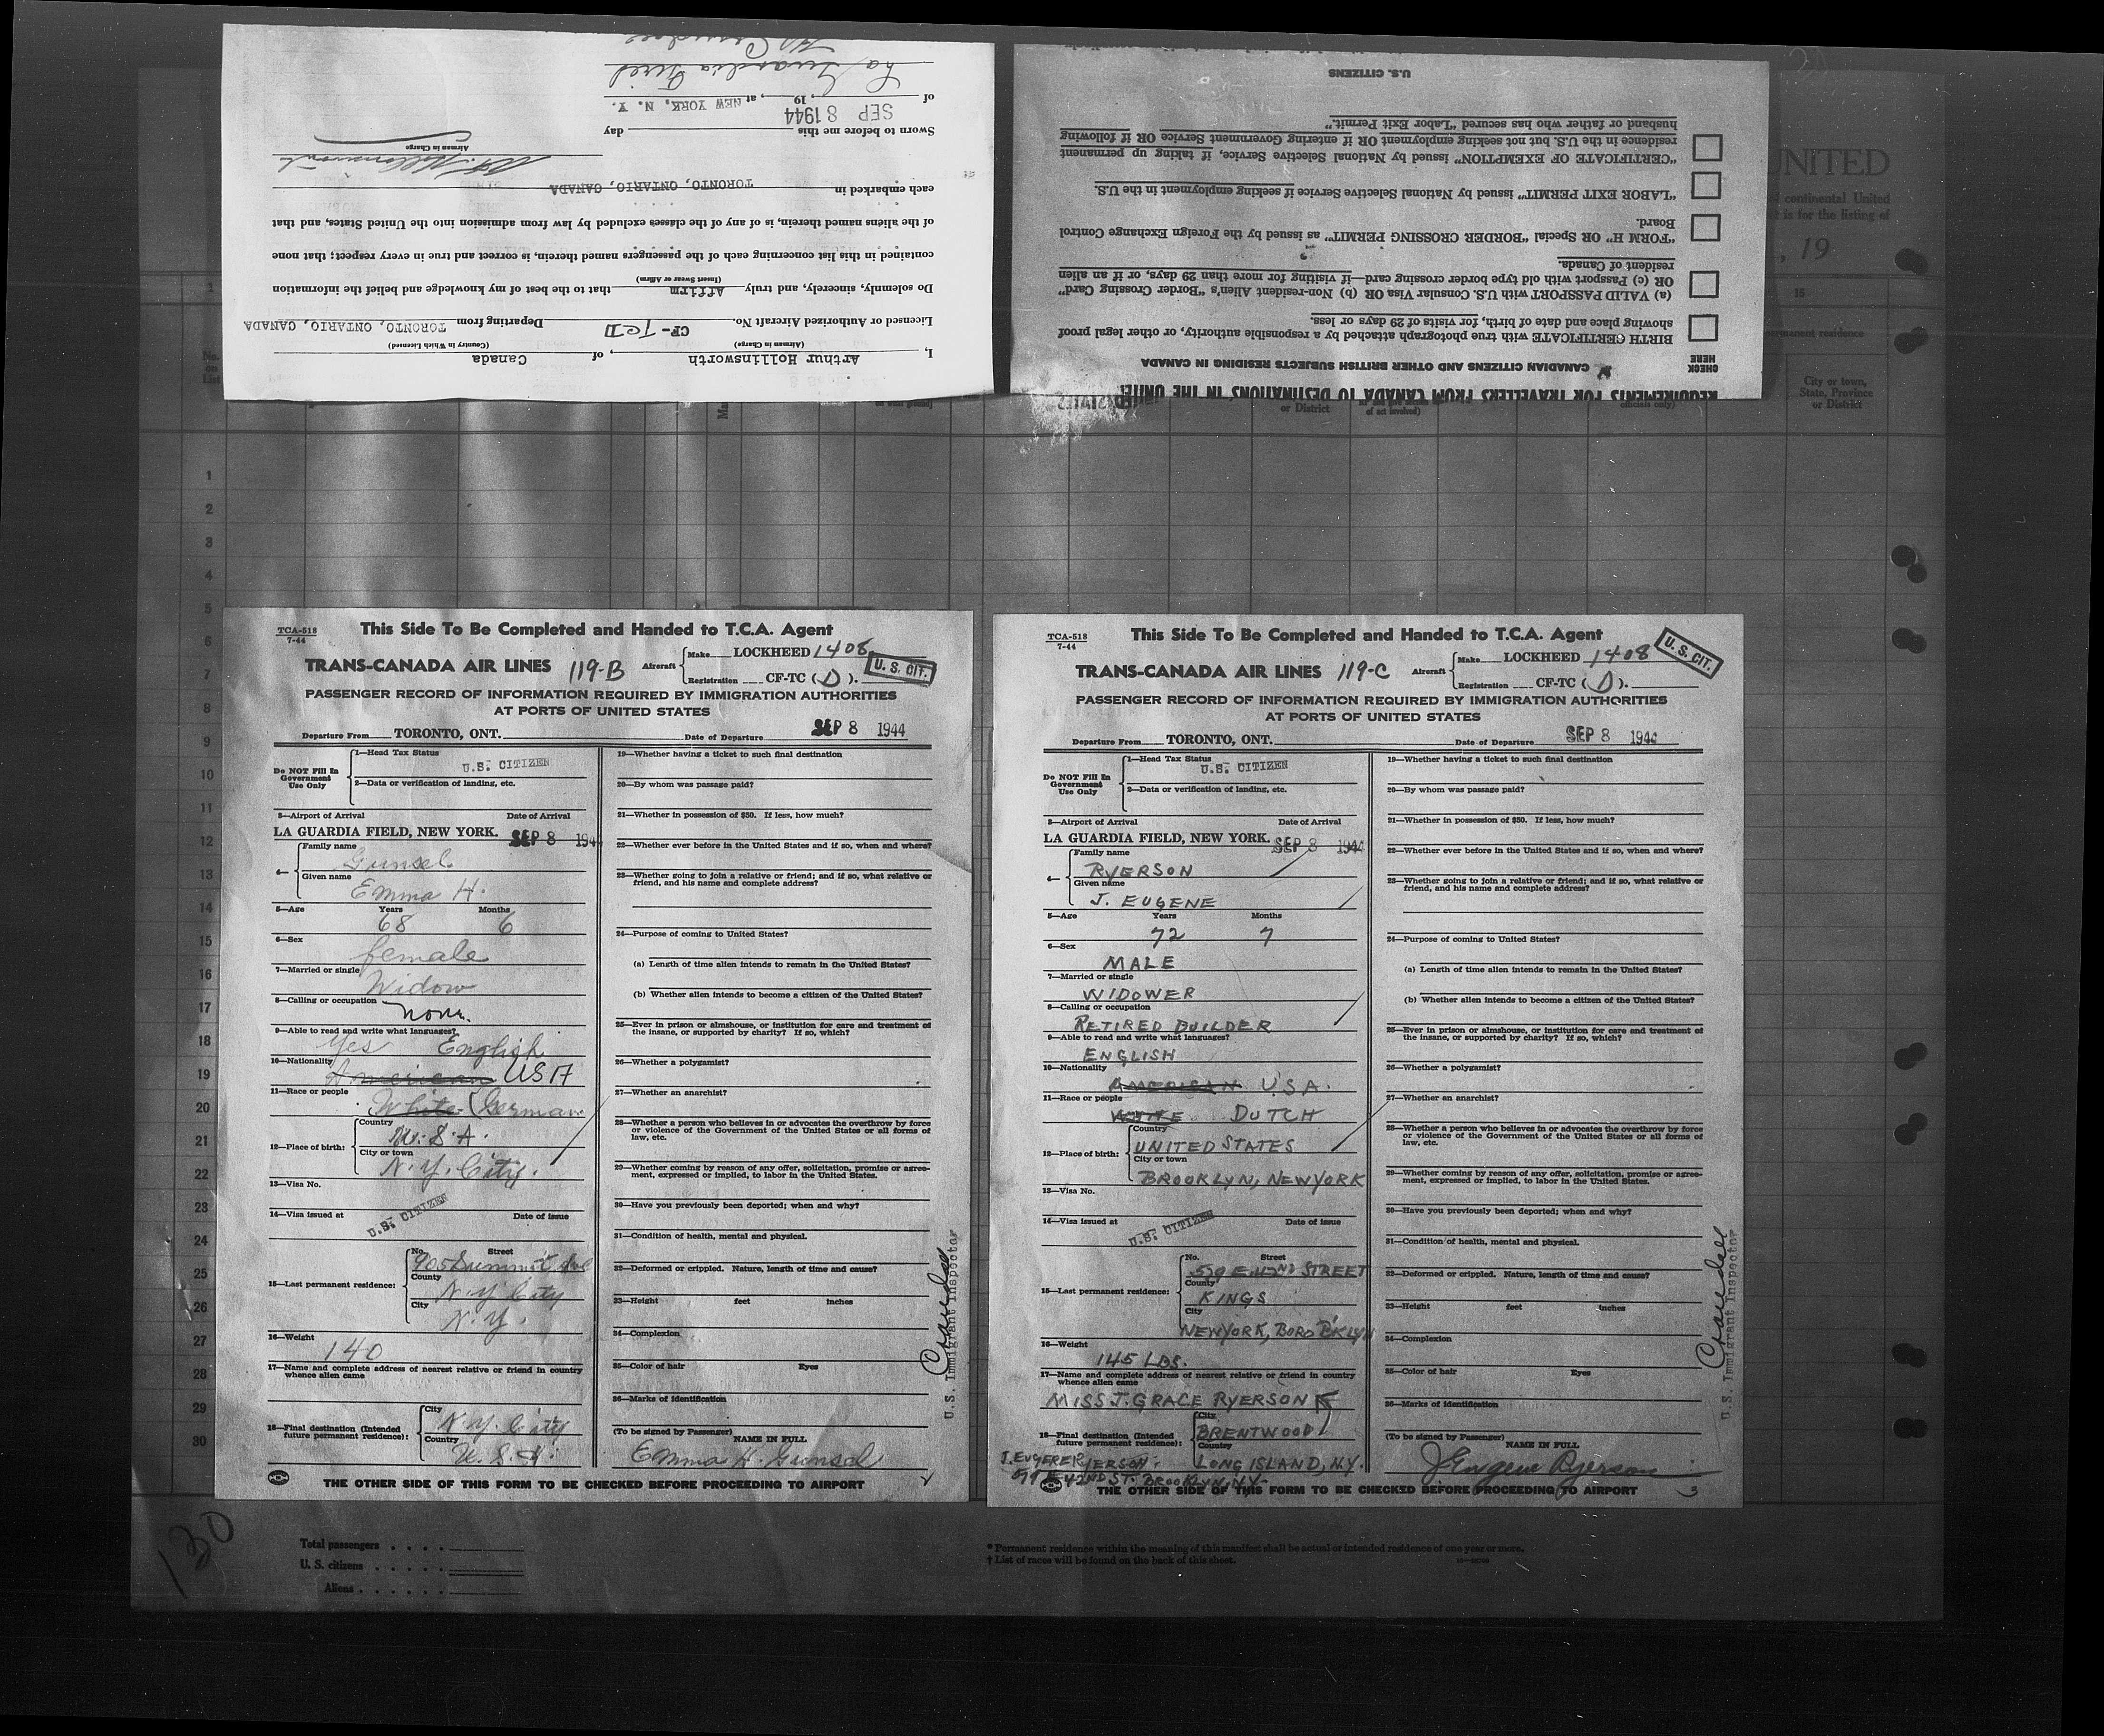 I, Arthur Hollinsworth, of Canada
(Airman in Charge) (Country in Which Licensed)
Licensed or Authorized Aircraft No. CF-TCD Departing from TORONTO, ONTARIO, CANADA
Do solemnly, sincerely, and truly Affirm that to the best of my knowledge and belief the information
(Insert Swear or Affirm)
contained in this list concerning each of the passengers named therein, is correct and true in every respect; that none
of the aliens named therein, is of any of the classes excluded by law from admission into the United States, and that
each embarked in TORONTO, ONTARIO, CANADA
Airman in Charge
Sworn to before me this day
SEP 8 1944
of , 19 , at NEW YORK, N. Y.
La Guardia Field
REQUIREMENTS FOR TRAVELLERS FROM CANADA TO DESTINATIONS IN THE UNITED STATES
CHECK HERE
CANADIAN CITIZENS AND OTHER BRITISH SUBJECTS RESIDING IN CANADA
BIRTH CERTIFICATE with true photograph attached by a responsible authority, or other legal proof
showing place and date of birth, for visits of 29 days or less.
(a) VALID PASSPORT with U.S. Consular Visa OR (b) Non-resident Alien's "Border Crossing Card"
OR (c) Passport with old type border crossing card—if visiting for more than 29 days, or if an alien
resident of Canada.
"FORM H" OR Special "BORDER CROSSING PERMIT" as issued by the Foreign Exchange Control
Board.
"LABOR EXIT PERMIT" issued by National Selective Service if seeking employment in the U.S.
"CERTIFICATE OF EXEMPTION" issued by National Selective Service, if taking up permanent
residence in the U.S. but not seeking employment OR if entering Government Service OR if following
husband or father who has secured "Labor Exit Permit."
U.S. CITIZENS
UNITED
of continental United
is for the listing of
, 19
15
permanent residence
City or town,
State, Province
or District
No.
on
List
or District
1
2
3
4
5
6
7
8
9
10
11
12
13
14
15
16
17
18
19
20
21
22
23
24
25
26
27
28
29
30
TCA-518
7-44
This Side To Be Completed and Handed to T.C.A. Agent
TRANS-CANADA AIR LINES 119-B Aircraft
Make LOCKHEED 1408
Registration CF-TC (D).
U. S. CIT.
PASSENGER RECORD OF INFORMATION REQUIRED BY IMMIGRATION AUTHORITIES
AT PORTS OF UNITED STATES
Departure From TORONTO, ONT. Date of Departure SEP 8 1944
Do NOT Fill In
Government
Use Only
1—Head Tax Status
U.S. CITIZEN
2—Data or verification of landing, etc.
3—Airport of Arrival Date of Arrival
LA GUARDIA FIELD, NEW YORK. SEP 8 194
4— Family name
Gunsel
Given name
Emma H.
5—Age Years Months
68 6
6—Sex
female
7—Married or single
Widow
8—Calling or occupation
none
9—Able to read and write what languages?
Yes English
10—Nationality
American USA
11—Race or people
White German
12—Place of birth: Country
U.S.A.
City or town
N.Y. City.
13—Visa No.
14—Visa issued at Date of issue
U.S. CITIZEN
15—Last permanent residence: No. Street
905 Summit Ave
County
N.Y City
City
N.Y.
16—Weight
140
17—Name and complete address of nearest relative or friend in country
whence alien came
18—Final destination (Intended
future permanent residence):
City
N.Y. City
Country
U.S.A.
19—Whether having a ticket to such final destination
20—By whom was passage paid?
21—Whether in possession of $50. If less, how much?
22—Whether ever before in the United States and if so, when and where?
23—Whether going to join a relative or friend; and if so, what relative or
friend, and his name and complete address?
24—Purpose of coming to United States?
(a) Length of time alien intends to remain in the United States?
(b) Whether alien intends to become a citizen of the United States?
25—Ever in prison or almshouse, or institution for care and treatment of
the insane, or supported by charity? If so, which?
26—Whether a polygamist?
27—Whether an anarchist?
28—Whether a person who believes in or advocates the overthrow by force
or violence of the Government of the United States or all forms of
law, etc.
29—Whether coming by reason of any offer, solicitation, promise or agree-
ment, expressed or implied, to labor in the United States.
30—Have you previously been deported; when and why?
31—Condition of health, mental and physical.
32—Deformed or crippled. Nature, length of time and cause?
33—Height feet inches
34—Complexion
35—Color of hair Eyes
36—Marks of identification
(To be signed by Passenger)
NAME IN FULL
Emma H. Gunsel
Crandell
U.S. Immigrant Inspector
THE OTHER SIDE OF THIS FORM TO BE CHECKED BEFORE PROCEEDING TO AIRPORT
2
TCA-518
7-44
This Side To Be Completed and Handed to T.C.A. Agent
TRANS-CANADA AIR LINES 119-C Aircraft
Make LOCKHEED 1408
Registration CF-TC (D).
U. S. CIT.
PASSENGER RECORD OF INFORMATION REQUIRED BY IMMIGRATION AUTHORITIES
AT PORTS OF UNITED STATES
Departure From TORONTO, ONT. Date of Departure SEP 8 1944
Do NOT Fill In
Government
Use Only
1—Head Tax Status
U.S. CITIZEN
2—Data or verification of landing, etc.
3—Airport of Arrival Date of Arrival
LA GUARDIA FIELD, NEW YORK. SEP 8 1944
4— Family name
RYERSON
Given name
J. EUGENE
5—Age Years Months
72 7
6—Sex
MALE
7—Married or single
WIDOWER
8—Calling or occupation
RETIRED BUILDER
9—Able to read and write what languages?
ENGLISH
10—Nationality
AMERICAN U.S.A.
11—Race or people
WHITE DUTCH
12—Place of birth: Country
UNITED STATES
City or town
BROOKLYN, NEW YORK
13—Visa No.
14—Visa issued at Date of issue
U.S. CITIZEN
15—Last permanent residence: No. Street
579 E 42ND STREET
County
KINGS
City
NEW YORK, BORO B'KLYN
16—Weight
145 LBS.
17—Name and complete address of nearest relative or friend in country
whence alien came
MISS J. GRACE RYERSON
18—Final destination (Intended
future permanent residence):
City
BRENTWOOD
Country
LONG ISLAND, N.Y.
J. EUGENE RYERSON
579 E 42ND ST. BROOKLYN, N.Y.
19—Whether having a ticket to such final destination
20—By whom was passage paid?
21—Whether in possession of $50. If less, how much?
22—Whether ever before in the United States and if so, when and where?
23—Whether going to join a relative or friend; and if so, what relative or
friend, and his name and complete address?
24—Purpose of coming to United States?
(a) Length of time alien intends to remain in the United States?
(b) Whether alien intends to become a citizen of the United States?
25—Ever in prison or almshouse, or institution for care and treatment of
the insane, or supported by charity? If so, which?
26—Whether a polygamist?
27—Whether an anarchist?
28—Whether a person who believes in or advocates the overthrow by force
or violence of the Government of the United States or all forms of
law, etc.
29—Whether coming by reason of any offer, solicitation, promise or agree-
ment, expressed or implied, to labor in the United States.
30—Have you previously been deported; when and why?
31—Condition of health, mental and physical.
32—Deformed or crippled. Nature, length of time and cause?
33—Height feet inches
34—Complexion
35—Color of hair Eyes
36—Marks of identification
(To be signed by Passenger)
NAME IN FULL
J. Eugene Ryerson
Crandell
U.S. Immigrant Inspector
THE OTHER SIDE OF THIS FORM TO BE CHECKED BEFORE PROCEEDING TO AIRPORT
3
130
Total passengers
U. S. citizens
Aliens
* Permanent residence within the meaning of this manifest shall be actual or intended residence of one year or more.
† List of races will be found on the back of this sheet.